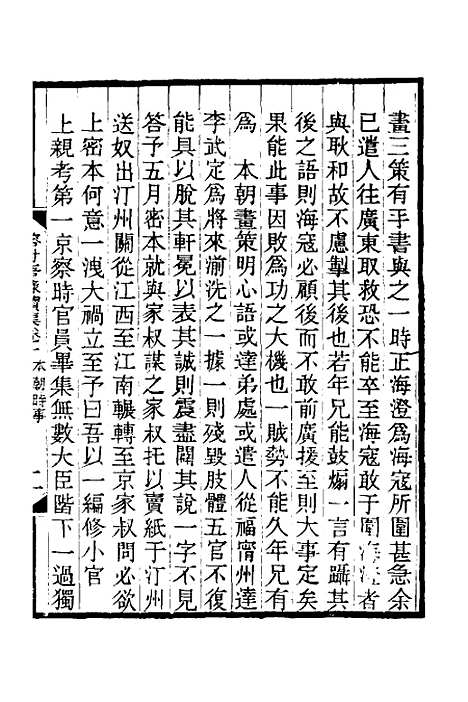 畫三策有手書與之一時正海澄為海寇所圍甚急余
已遣人往廣東取救恐不能卒至海寇敢于圍海澄者
與耿和故不慮掣其後也若年兄能鼓煽一言有躡其
後之語則海寇必顧後而不敢前廣援至則大事定矣
果能此事因敗為功之大機也一賊勢不能久年兄有
為　本朝畫策明心語或達弟處或遣人從福甯州達
李武定為將來湔洗之一據一則殘毀肢體五官不復
能具以脫其軒冕以表其誠則震盡闢其說一字不見
答予五月密本就與家叔謀之家叔托以賣紙于汀州
送奴出汀州關從江西至江南輾轉至京家叔問必欲
上密本何意一洩大禍立至予曰吾以一編修小官
上親考第一京察時官員畢集無數大臣階下一過獨
榕村語錄續集卷一　本朝時事